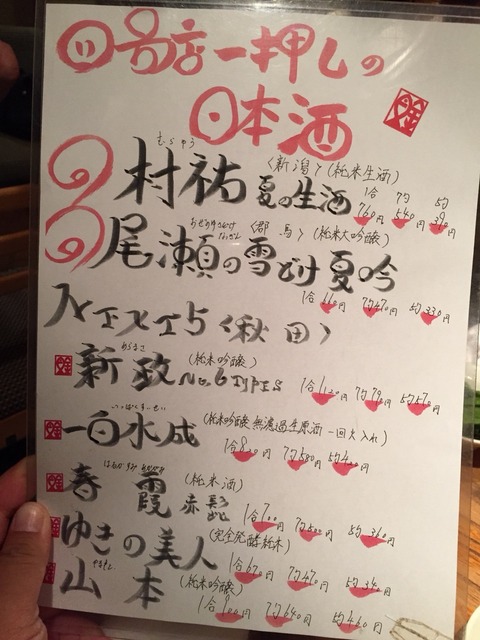 号店一押しの
日本酒
むらゆう
〈新潟〉(純米生酒)
村祐 夏の生酒
1合 7勺 5勺
760円 540円 390円
〈郡馬〉(純米大吟醸)
尾瀬の雪どけ 夏吟
1合 660円 7勺 470円 5勺 330円
NEXT5〈秋田〉
あらまさ
(純米吟醸)
新政 No.6 TYPE S
1合 1,120円 7勺 790円 5勺 570円
いっぱくすいせい
(純米吟醸 無濾過生原酒 一回火入れ)
一白水成
1合 820円 7勺 580円 5勺
はるかすみ
(純米酒)
春霞 赤髭
1合 700円 7勺 500円 5勺 360円
(完全発酵純米)
ゆきの美人
1合 670円 7勺 470円 5勺 340円
やまもと
(純米吟醸)
山本
1合 7勺 640円 5勺 460円